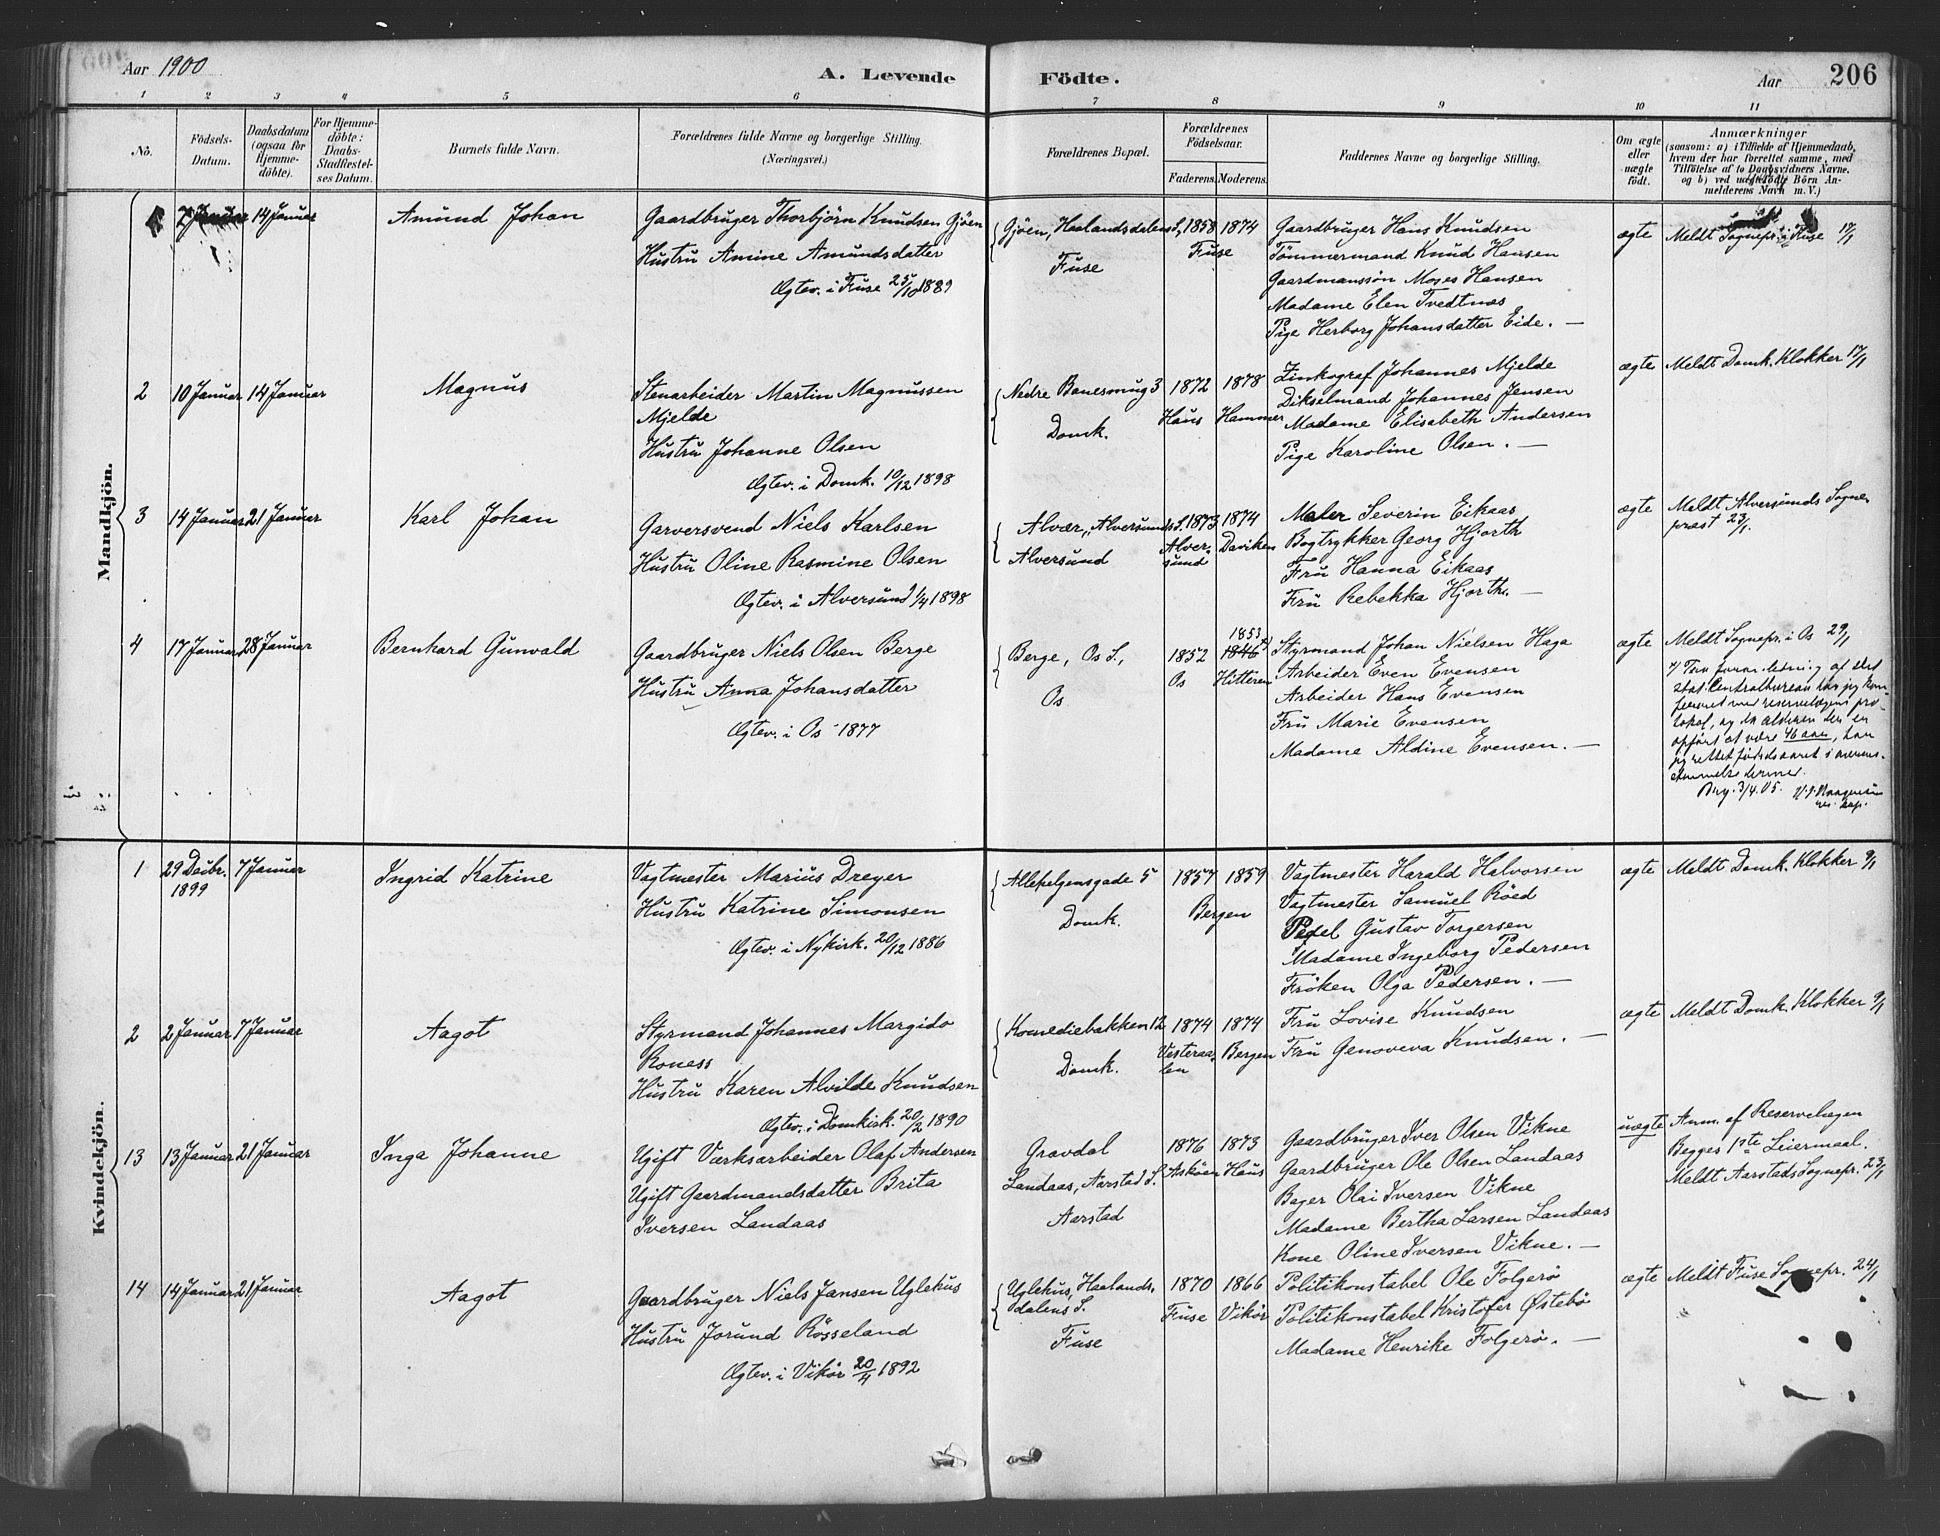 Aar 1900
A. Levende Födte.
Aar 206
1 2 3 4 5 6 7 8 9 10 11
Nó.
Födsels-
Datum.
Daabsdatum
(ogsaa for
Hjemme-
döbte).
For Hjemme-
döbte:
Daabs-
Stadfæstel-
ses Datum.
Barnets fulde Navn.
Forældrenes fulde Navne og borgerlige Stilling.
(Næringsvei.)
Forældrenes Bopæl.
Forældrenes
Födselsaar.
Faderens. Moderens.
Faddernes Navne og borgerlige Stilling.
Om ægte
eller
uægte
födt.
Anmærkninger
(saasom: a) i Tilfælde af Hjemmedaab,
hvem der har forrettet samme, med
Tilföielse af to Daabsvidners Navne,
og b) ved uægtefödte Börn An-
melderens Navn m. V.)
Mandkjön.
1 7 Januar 14 Januar
Amund Johan
Gaardbruger Thorbjörn Knudsen Gjöen
Hustru Amine Amundsdatter
Ægtev. i Fuse 25/10 1889
Gjöen, Haalandsdalens S.,
Fuse
1858 1874
Fuse
Gaardbruger Hans Knudsen
Tömmermand Knud Hansen
Gaardmanssön Moses Hansen
Madame Elen Tvedtnæs
Pige Herborg Johansdatter Eide. —
ægte
Meldt Sognepr. i Fuse 17/1
2 10 Januar 14 Januar
Magnus
Stenarbeider Martin Magnussen
Mjelde
Hustru Johanne Olsen
Ægtev. i Domk. 10/12 1898
Nedre Banesmug 3
Domk.
1872 1878
Haus Hammer
Zinkograf Johannes Mjelde
Dikselmand Johannes Jensen
Madame Elisabeth Andersen
Pige Karoline Olsen. —
ægte
Meldt Domk. Klokker 17/1
3 14 Januar 21 Januar
Karl Johan
Garversvend Niels Karlsen
Hustru Oline Rasmine Olsen
Ægtev. i Alversund 1/4 1898
Alvær, Alversunds S.
Alversund
1873 1874
Alver-
sund Daviken
Maler Severin Eikaas
Bogtrykker Georg Hjorth
Fru Hanna Eikaas
Fru Rebekka Hjorth. —
ægte
Meldt Alversunds Sogne-
præst 23/1.
4 17 Januar 28 Januar
Bernhard Gunvald
Gaardbruger Niels Olsen Berge
Hustru Anna Johansdatter
Ægtev. i Os - 1877
Berge, Os S.,
Os
1853
1852 1846
Os Hitteren
Styrmand Johan Nielsen Haga
Arbeider Even Evensen
Arbeider Hans Evensen
Fru Marie Evensen
Madame Aldine Evensen. —
ægte
Meldt Sognepr. i Os 29/1
foranledning af det
stat. Centralbureau har jeg kon-
fereret med reservelægens pro-
tokol, og da alderen der er
opført at være 46 aar, har
jeg rettet fødselsaaret i overens-
stemmelse dermed.
Brg. 3/4.05.
res. kap.
Kvindekjön.
1 29 Decbr. 7 Januar
1899
Ingrid Katrine
Vagtmester Marius Dreyer
Hustru Katrine Simonsen
Ægtev. i Nykirk. 20/12 1886
Allehelgensgade 5
Domk.
1857 1859
Bergen
Vagtmester Harald Halvorsen
Vagtmester Samuel Röed
Pedel Gustav Torgersen
Madame Ingeborg Pedersen
Fröken Olga Pedersen. —
ægte
Meldt Domk. Klokker 9/1
2 2 Januar 7 Januar
Aagot
Styrmand Johannes Margido
Roness
Hustru Karen Alvilde Knudsen
Ægtev. i Domkirk. 20/2 1890
Komediebakken 12
Domk.
1874 1874
Vesteraa-
len Bergen
Fru Lovise Knudsen
Fru Genoveva Knudsen. —
ægte
Meldt Domk. Klokker 9/1
13 13 Januar 21 Januar
Inga Johanne
Ugift Værksarbeider Olaf Andersen
Ugift Gaardmandsdatter Brita
Iversen Landaas
Gravdal
Landaas, Aarstad S.
Aarstad
1876 1873
Asköen Haus
Gaardbruger Iver Olsen Vikne
Gaardbruger Ole Olsen Landaas
Bager Olai Iversen Vikne
Madame Bertha Larsen Landaas
Kone Oline Iversen Vikne. —
uægte
Anm. af Reservelægen
Begges 1ste Leiermaal.
Meldt Aarstads Sognepr. 23/1
14 14 Januar 21 Januar
Aagot
Gaardbruger Niels Jansen Uglehus
Hustru Jorund Rösseland
Ægtev. i Vikör 20/4 1892
Uglehus, Haalands-
dalens S.
Fuse
1870 1866
Fuse Vikör
Politikonstabel Ole Folgerö
Politikonstabel Kristofer Østebö
Madame Henrike Folgerö. —
ægte
Meldt Fuse Sognepr. 24/1